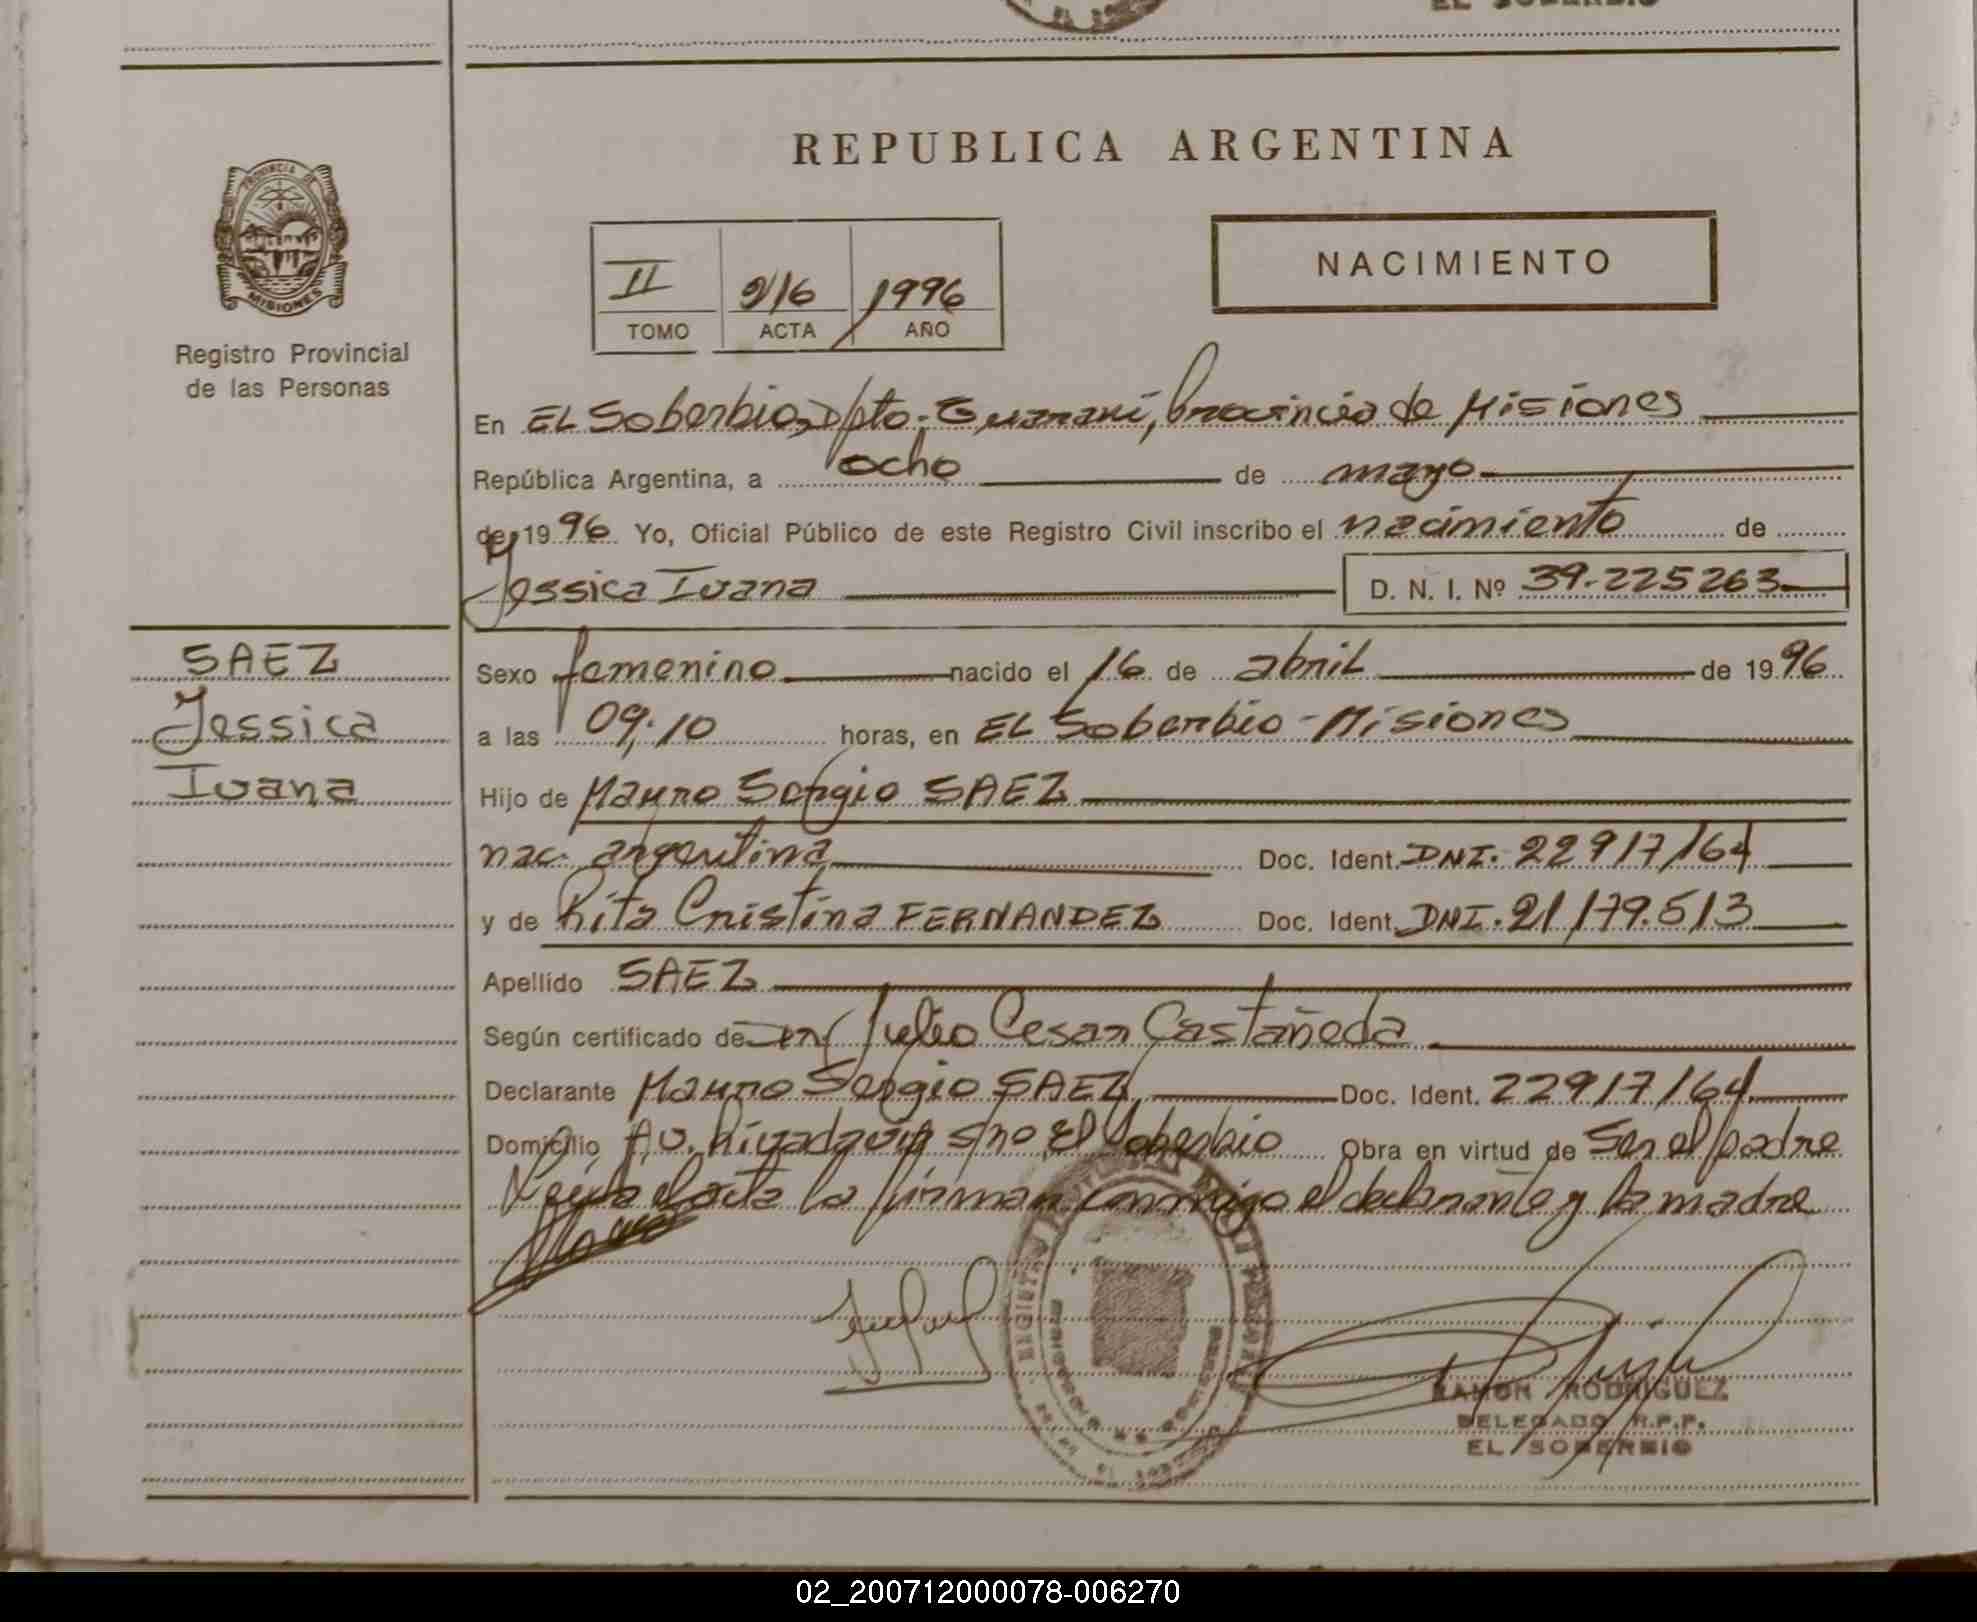 EL SOBERBIO
REPUBLICA ARGENTINA
PROVINCIA DE
MISIONES
Registro Provincial
de las Personas
NACIMIENTO
II 216 1996
TOMO ACTA AÑO
En EL Soberbio, Dpto. Guaraní, Provincia de Misiones
República Argentina, a ocho de mayo
de 1996. Yo, Oficial Público de este Registro Civil inscribo el nacimiento de
Jessica Ivana D. N. I. Nº 39.225263
SAEZ
Jessica
Ivana
Sexo femenino nacido el 16 de abril de 1996
a las 09,10 horas, en EL Soberbio - Misiones
Hijo de Mauro Sergio SAEZ
nac. argentina Doc. Ident. DNI. 22917164
y de Rita Cristina FERNANDEZ Doc. Ident. DNI. 21179.513
Apellido SAEZ
Según certificado de Julio Cesar Castañeda
Declarante Mauro Sergio SAEZ Doc. Ident. 22917164
Domicilio Av. Rivadavia s/no El Soberbio Obra en virtud de Ser el padre
Leída el acta la firman conmigo el declarante y la madre
RAMON RODRIGUEZ
DELEGADO R.P.P.
EL SOBERBIO
02_200712000078-006270